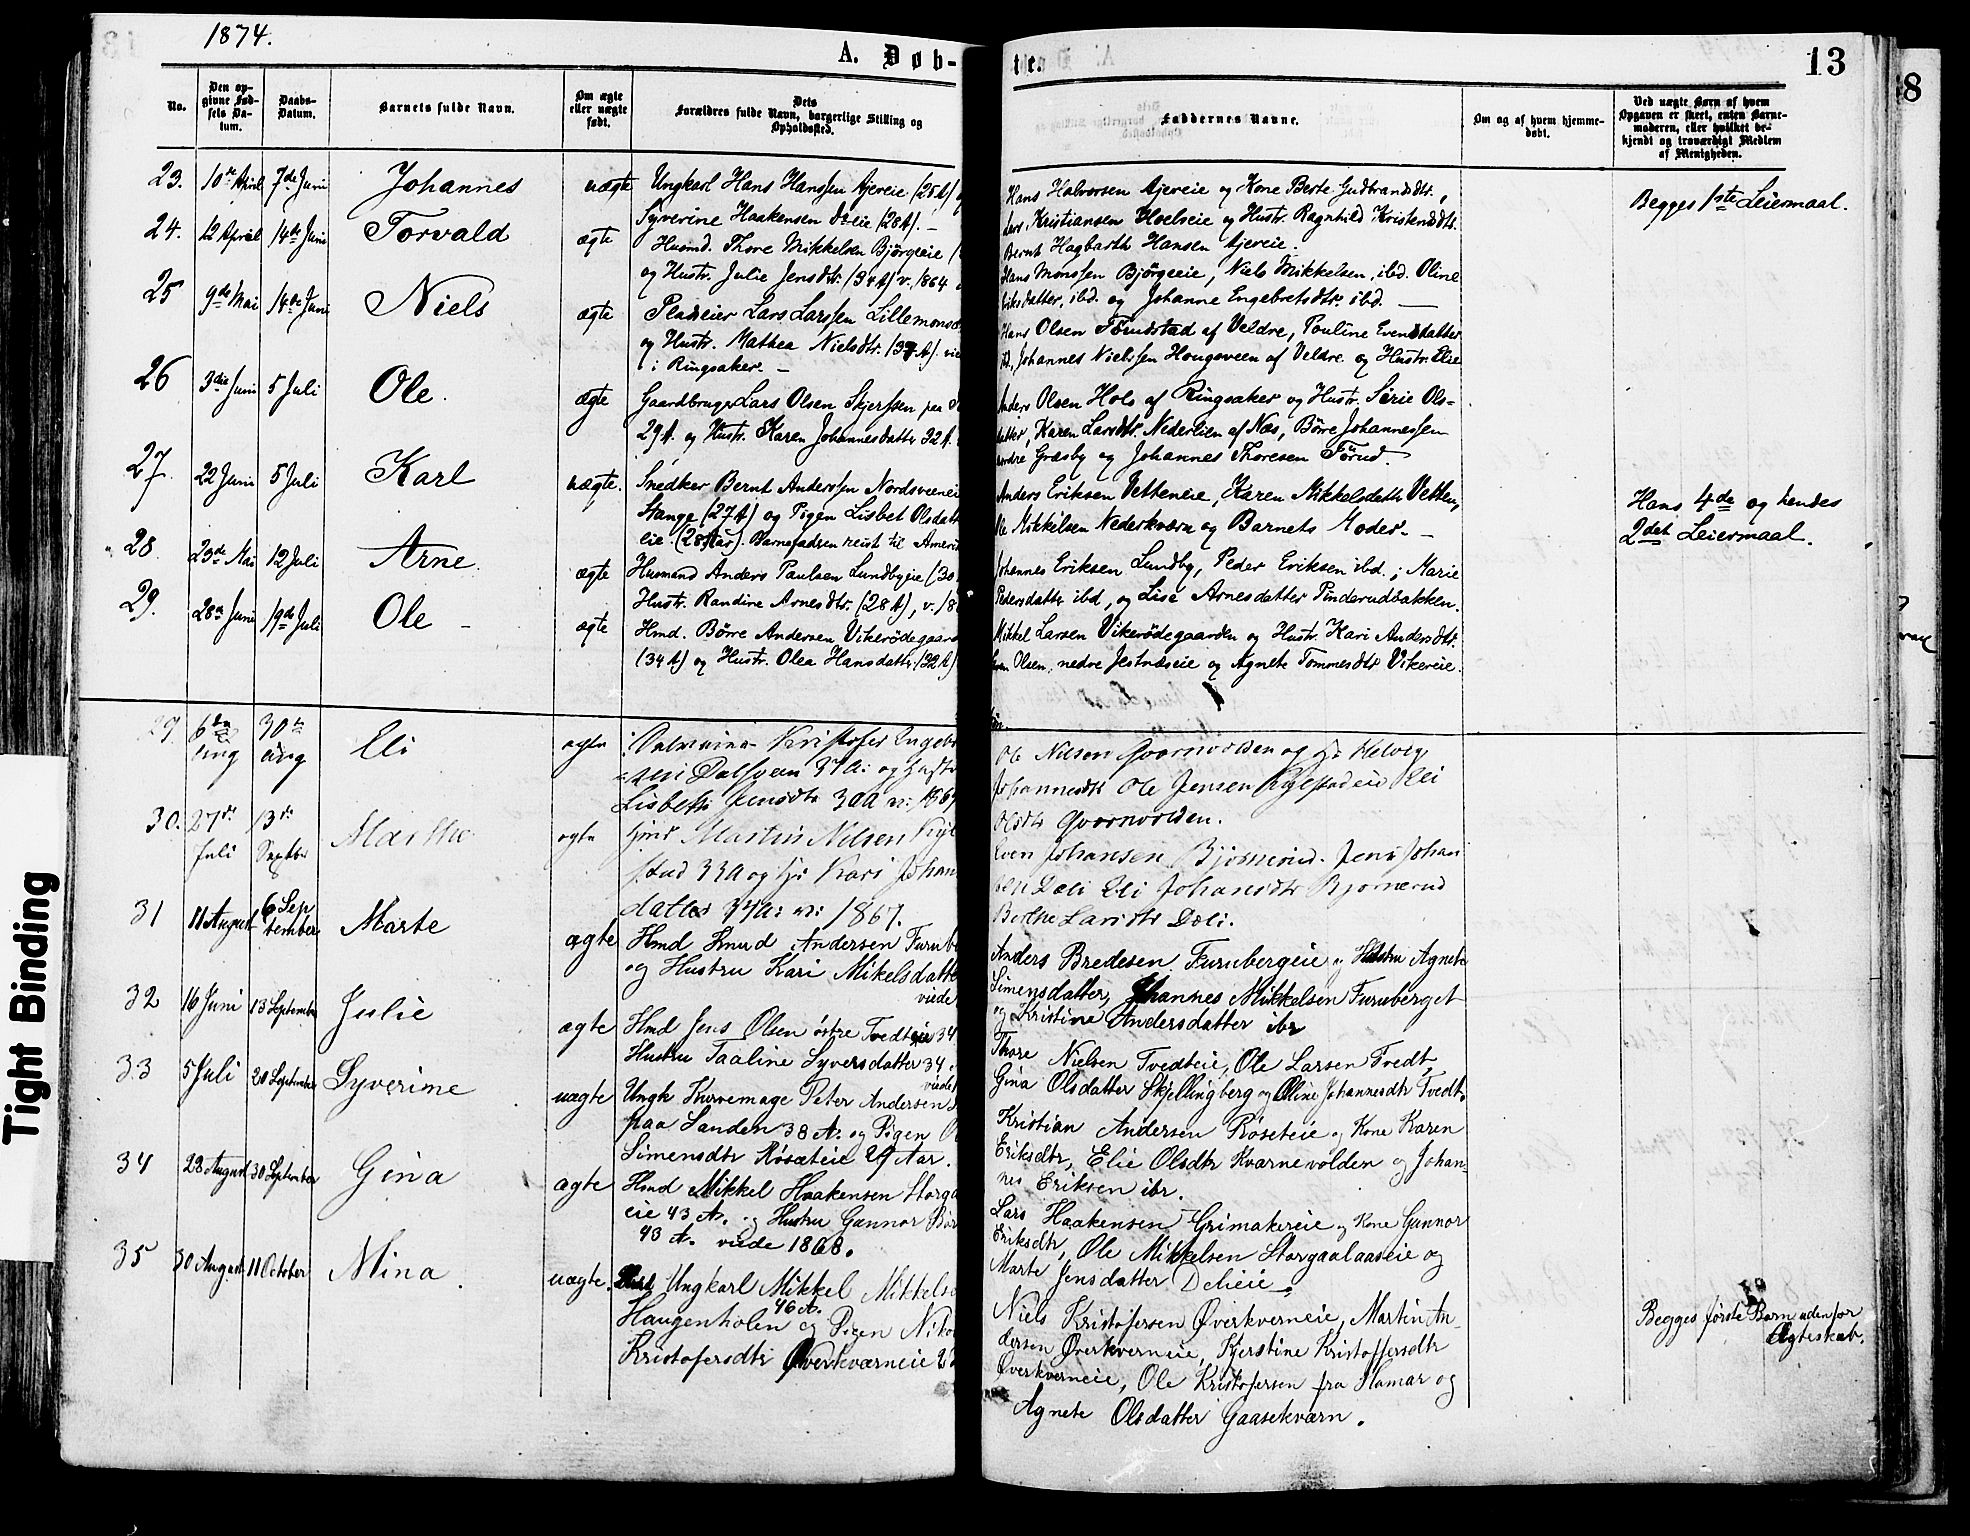 1874.
A. Døb-
te.
13
No.
Den op-
givne Fød-
sels Da-
tum.
Daabs-
Datum.
Barnets fulde Navn.
Om ægte
eller uægte
født.
Dets
Forældres fulde Navn, borgerlige Stilling og
Opholdssted.
Faddernes Navne.
Om og af hvem hjemme-
døbt.
Ved uægte Børn af hvem
Opgaven er skeet, enten Barne-
moderen, eller hvilket be-
kjendt og troværdigt Medlem
af Menigheden.
23. 10de April 7de Juni Johannes uægte Ungkarl Hans Hanssen Ajereie (25 A)
Syverine Haakensen (28 A). —
Hans Halvorsen Ajereie og Kone Berte Gudbrandsdtr.,
Lars Kristiansen Hoelseie og Hustr. Ragnhild Kristensdtr.
Bernt Hagbarth Hansen Ajereie.
Begges 1ste Leiermaal.
24. 12 April 14de Juni Torvald ægte Husmd. Thore Mikkelsen Bjørgeeie
og Hustr. Julie Jensdtr. (34 A) v. 1864
Hans Monssen Bjørgeeie, Niels Mikkelsen, ibid. Oline
Eriksdatter, ibd. og Johanne Engebretsdtr. ibd. —
25 9de Mai 14de Juni Niels ægte Pladseier Lars Larssen Lillemons
og Hustr. Mathea Nielsdtr. (37 A). vie
i Ringsaker. —
Hans Olsen Förudstad af Veldre, Pauline Evensdatter
ibd., Johannes Nielssen Hougsveen af Veldre og Hustr. Elie
26 3die Juni 5 Juli Ole. ægte Gaardbruger Lars Olsen Skjerssen paa
29 A. og Hustr. Karen Johannesdatter 32 A.
Anders Olsen Hols af Ringsaker og Hustr. Serie Ols-
datter, Karen Larsdtr. Nederlien af Næs, Börre Johannessen
nordre Græsby og Johannes Thoresen Förud.
27. 22 Juni 5 Juli Karl uægte. Snedker Bernt Anderssen Nordsveenei
Stange (27 A) og Pigen Lisbet Olsdatt
eie. (28 Aar). Barnefadren reist til Ameri
Anders Eriksen Vetteneie, Karen Mikkelsdattr Vetten,
Ole Mikkelsen Nederkværn og Barnets Moder. —
Hans 4de og hendes
2det Leiermaal.
28. 23de Mai 12 Juli Arne. ægte Husmand Anders Paulsen Lundbyeie (30
Hustr. Randine Arnesdtr. (28 A), v. 18
Johannes Eriksen Lundby, Peder Eriksen ibd.; Marie
Pedersdatter ibd, og Lise Arnesdatter Pinderudbakken.
29. 28de Juni 19de Juli Ole — ægte Hmd. Börre Andersen Vikerödegaard
(34 A) og Hustr. Olea Hansdatter (32 A)
Mikkel Larsen Vikerödegaarden og Hustr. Kari Andersdtr.
Even Olsen, nedre Jestnæseie og Agnete Tommesdtr Vikereie.
29. 6te Aug 30te Aug Eli ægte Kristofer Engeb
sen Dalsveen 37 A: og Hustr
Lisbeth Jensdtr 30 A v: 1869
Ole Nilsen Qvornvolden og H: Helvig
Johannesdtr Ole Jensen Rylstadeie Eli
Olsdtr Qvornvolden.
30. 27de Juli 13de Septbr Marthe ægte Martin Nilsen Ryl
stad 33 A og H: Kari Johan
datter 37 A: v: 1867.
Even Johansen Bjørnerud. Jens Johan
sen Dæli Eli Johansdtr Bjornerud
Berthe Larsdtr Dæli.
31 11 August 6 Sep
tember Marte ægte Hmd Knud Andersen Furub
og Hustru Kari Mikelsdatte
viede
Anders Bredesen Furubergeie og Hustru Agnete
Simensdatter, Johannes Mikkelsen Furuberget
og Kristine Andersdatter ibr
32 16 Juni 13 September Julie ægte Hmd Jens Olsen østre Tvedteie 34
Hustru Taaline Syversdatter 34
viede
Thore Nielsen Tvedteie, Ole Larsen Tvedt,
Gina Olsdatter Skjellingberg og Oline Johannesdtr Tvedt.
33 5 Juli 20 September Syverine uægte Ungk Kurvemage Peter Andersen
paa Sanden 38 A. og Pigen O
Simensdtr Röseteie 29 Aar.
Kristian Andersen Röseteie og Kone Karen
Eriksdtr, Elie Olsdtr Kværnevolden og Johan-
nes Eriksen ibr.
34 28 August 30 September Gina ægte Hmd Mikkel Haakensen Storga
eie 43 A. og Hustru Gunnor Bör
43 A. viede 1868.
Lars Haakensen Grimakereie og Kone Gunnor
Eriksdtr, Ole Mikkelsen Storgaalaaseie og
Marte Jensdatter Delieie.
35 30 August 11 October Mina. uægte. Ungkarl Mikkel Mikkels
Haugenholen 46 A. og Pigen Niko
Kristofersdtr Øverkværneie 2
Niels Kristofersen Øverkverneie, Martin An-
dersen Øverkverneie, Kjerstine Kristoffersdtr
Øverkverneie, Ole Kristofersen fra Hamar og
Agnete Olsdatter Gaasekværn.
Begges første Barn udenfor
Ægteskab.
Tight Binding
8